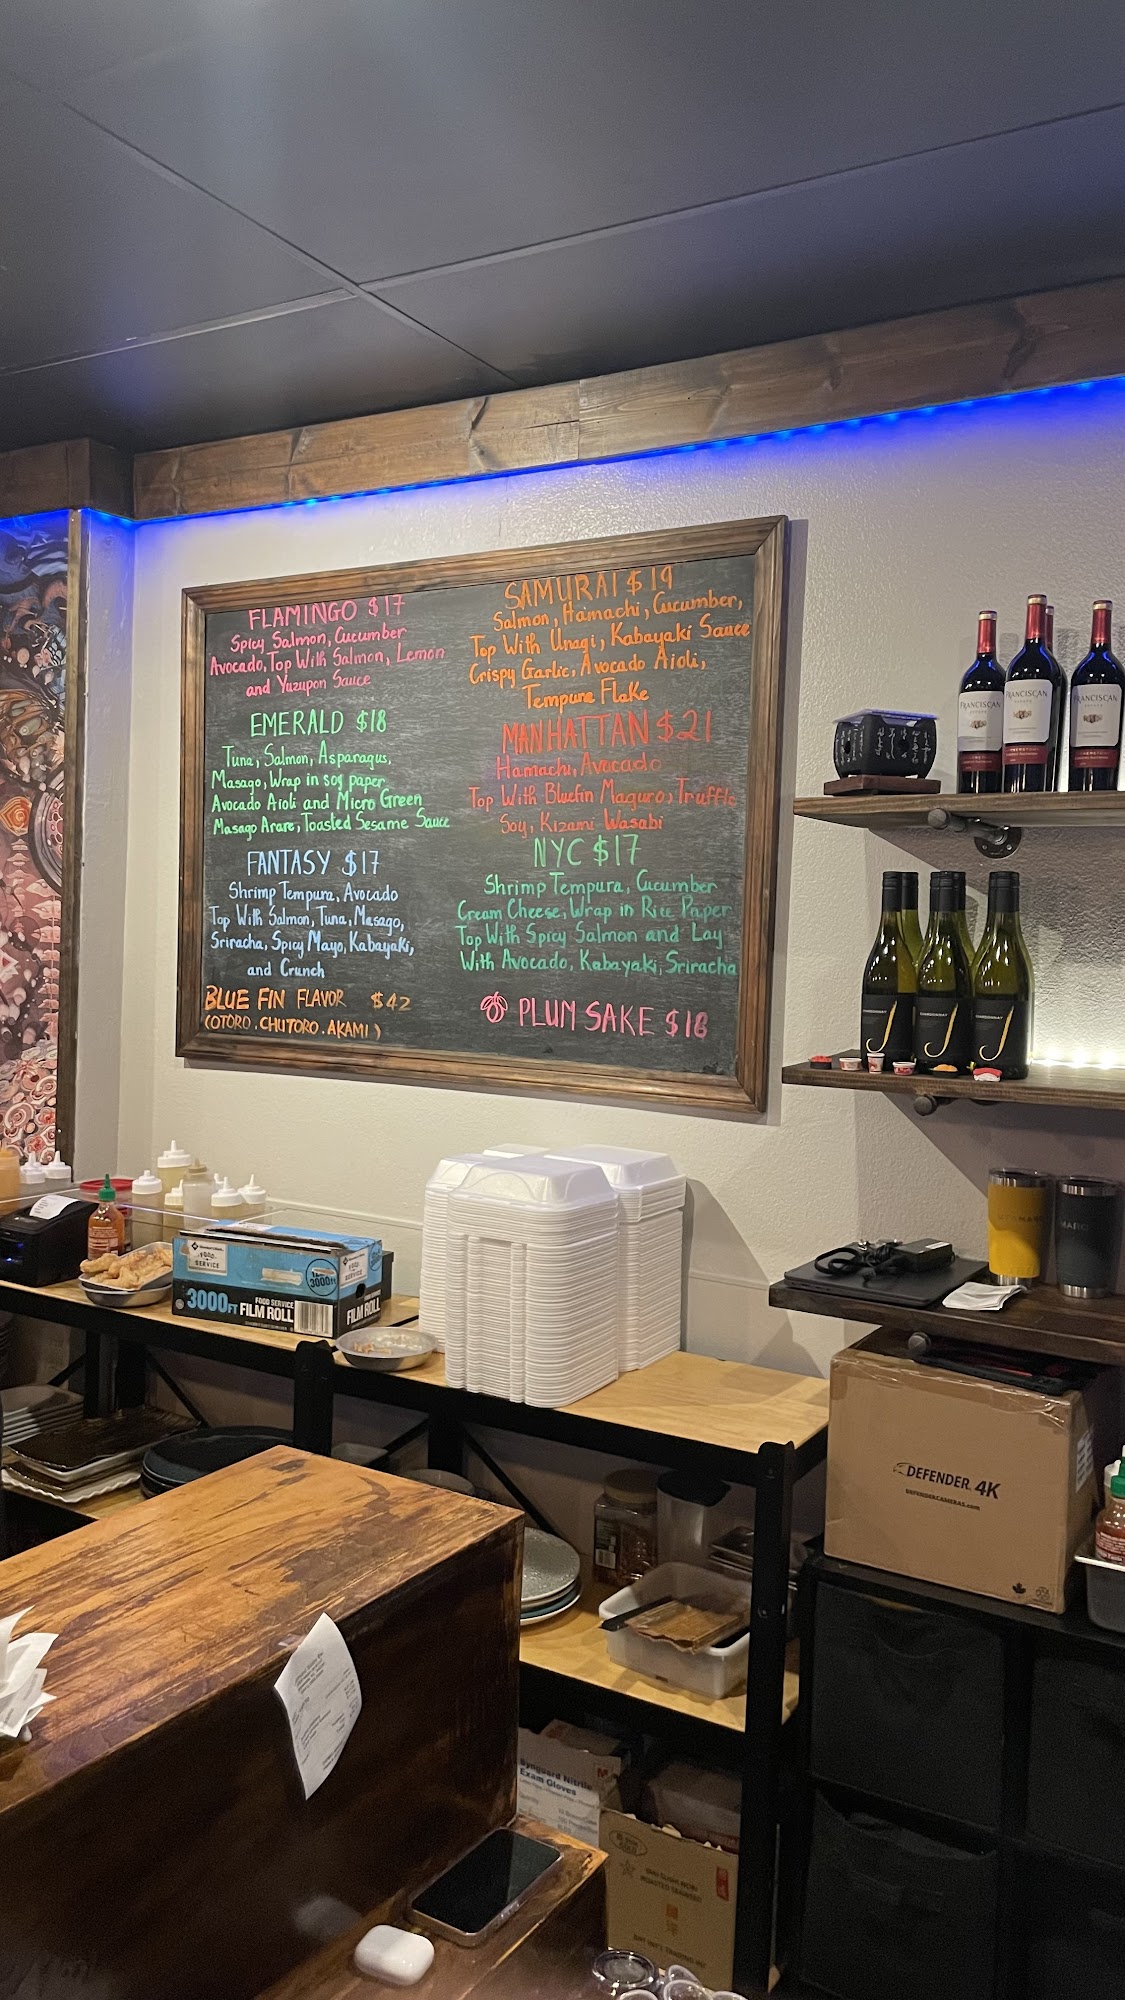 FLAMINGO $17
Spicy Salmon, Cucumber
Avocado, Top With Salmon, Lemon
and Yuzupon Sauce
EMERALD $18
Tuna, Salmon, Asparagus,
Masago, Wrap in soy paper
Avocado Aioli and Micro Green
Masago Arare, Toasted Sesame Sauce
FANTASY $17
Shrimp Tempura, Avocado
Top With Salmon, Tuna, Masago,
Sriracha, Spicy Mayo, Kabayaki,
and Crunch
BLUE FIN FLAVOR $42
(OTORO . CHUTORO . AKAMI)
SAMURAI $19
Salmon, Hamachi, Cucumber,
Top With Unagi, Kabayaki Sauce
Crispy Garlic, Avocado Aioli,
Tempura Flake
MANHATTAN $21
Hamachi, Avocado
Top With Bluefin Maguro, Truffle
Soy, Kizami Wasabi
NYC $17
Shrimp Tempura, Cucumber
Cream Cheese, Wrap in Rice Paper
Top With Spicy Salmon and Lay
With Avocado, Kabayaki, Sriracha
PLUM SAKE $18
FRANCISCAN
FRANCISCAN
FRANCISCAN
CHARDONNAY
J
CHARDONNAY
J
CHARDONNAY
J
FOOD
SERVICE
3000FT
FOOD SERVICE
FILM ROLL
3000ft
FOOD
SERVICE
FILM ROLL
DEFENDER 4K
DEFENDERCAMERAS.com
Synguard Nitrile
Exam Gloves
M
ROASTED SEAWEED